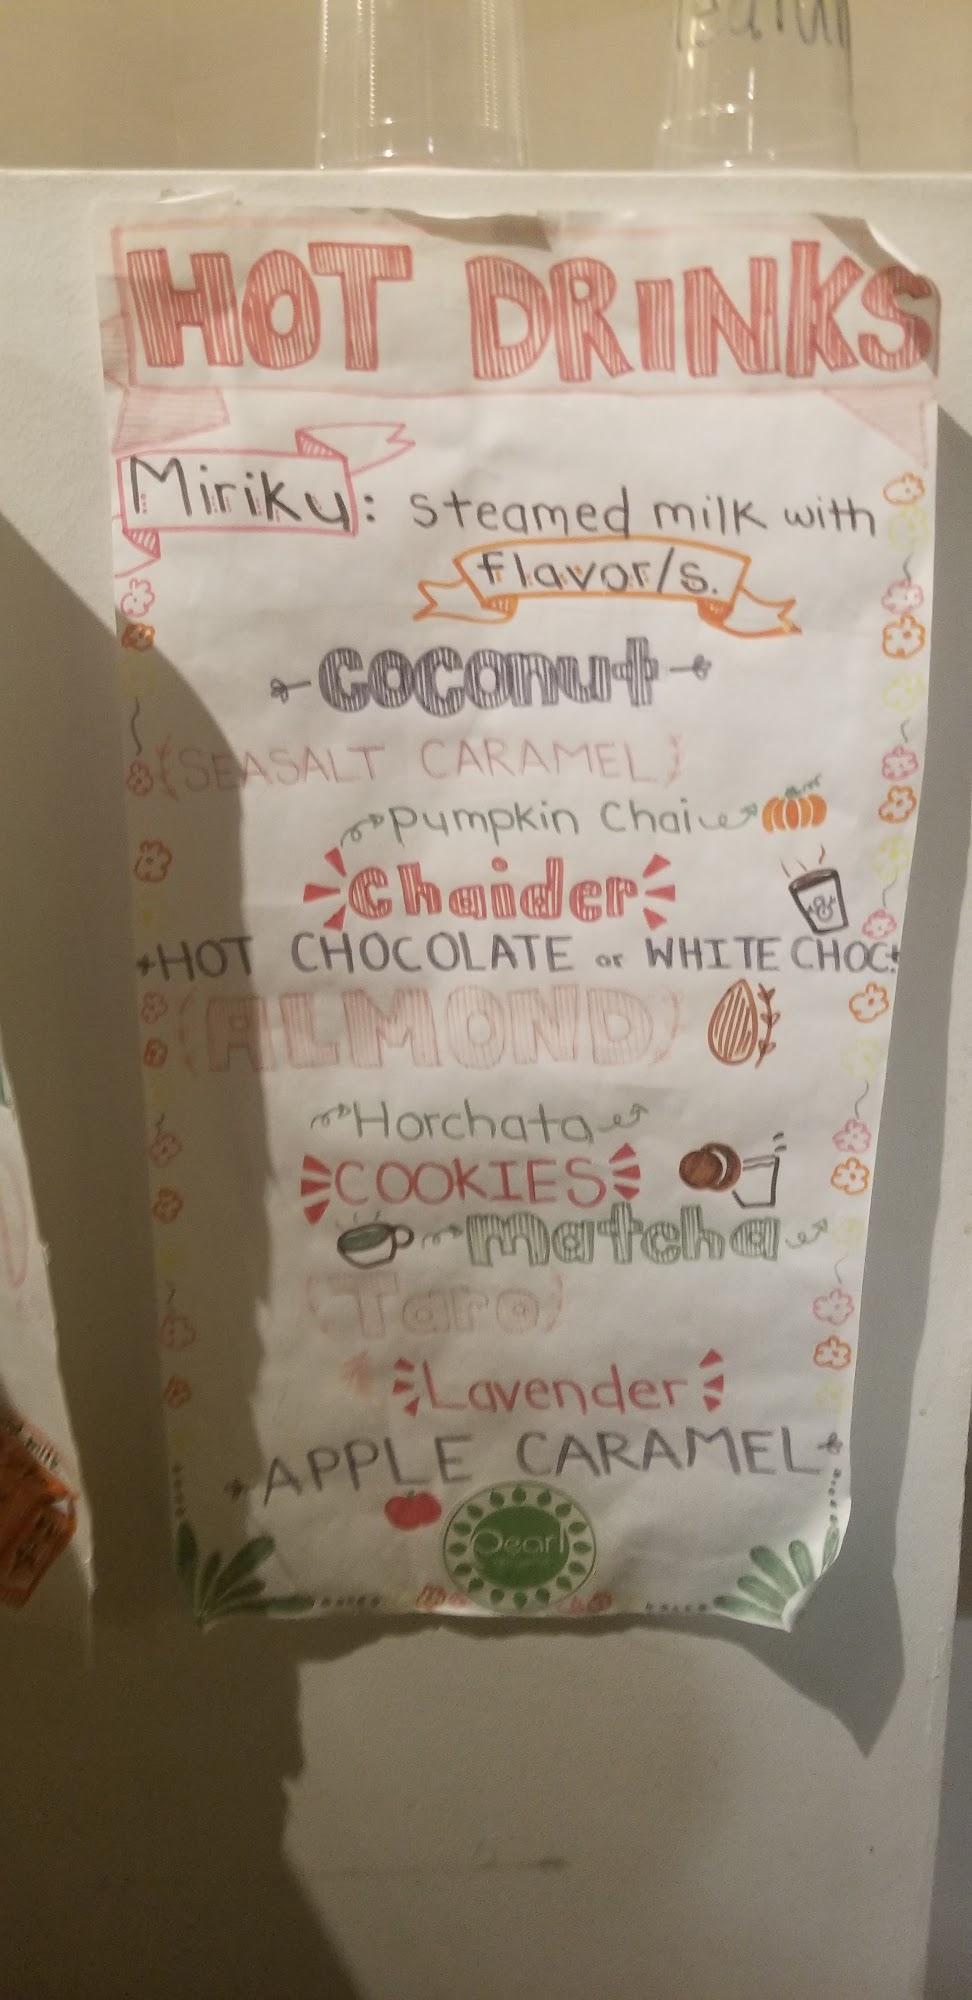 HOT DRINKS
Miriku: steamed milk with
flavor/s.
coconut
(SEASALT CARAMEL)
Pumpkin Chai
Chaider
HOT CHOCOLATE or WHITE CHOC.
(ALMOND)
Horchata
COOKIES
Matcha
(Taro)
Lavender
APPLE CARAMEL
Pearl